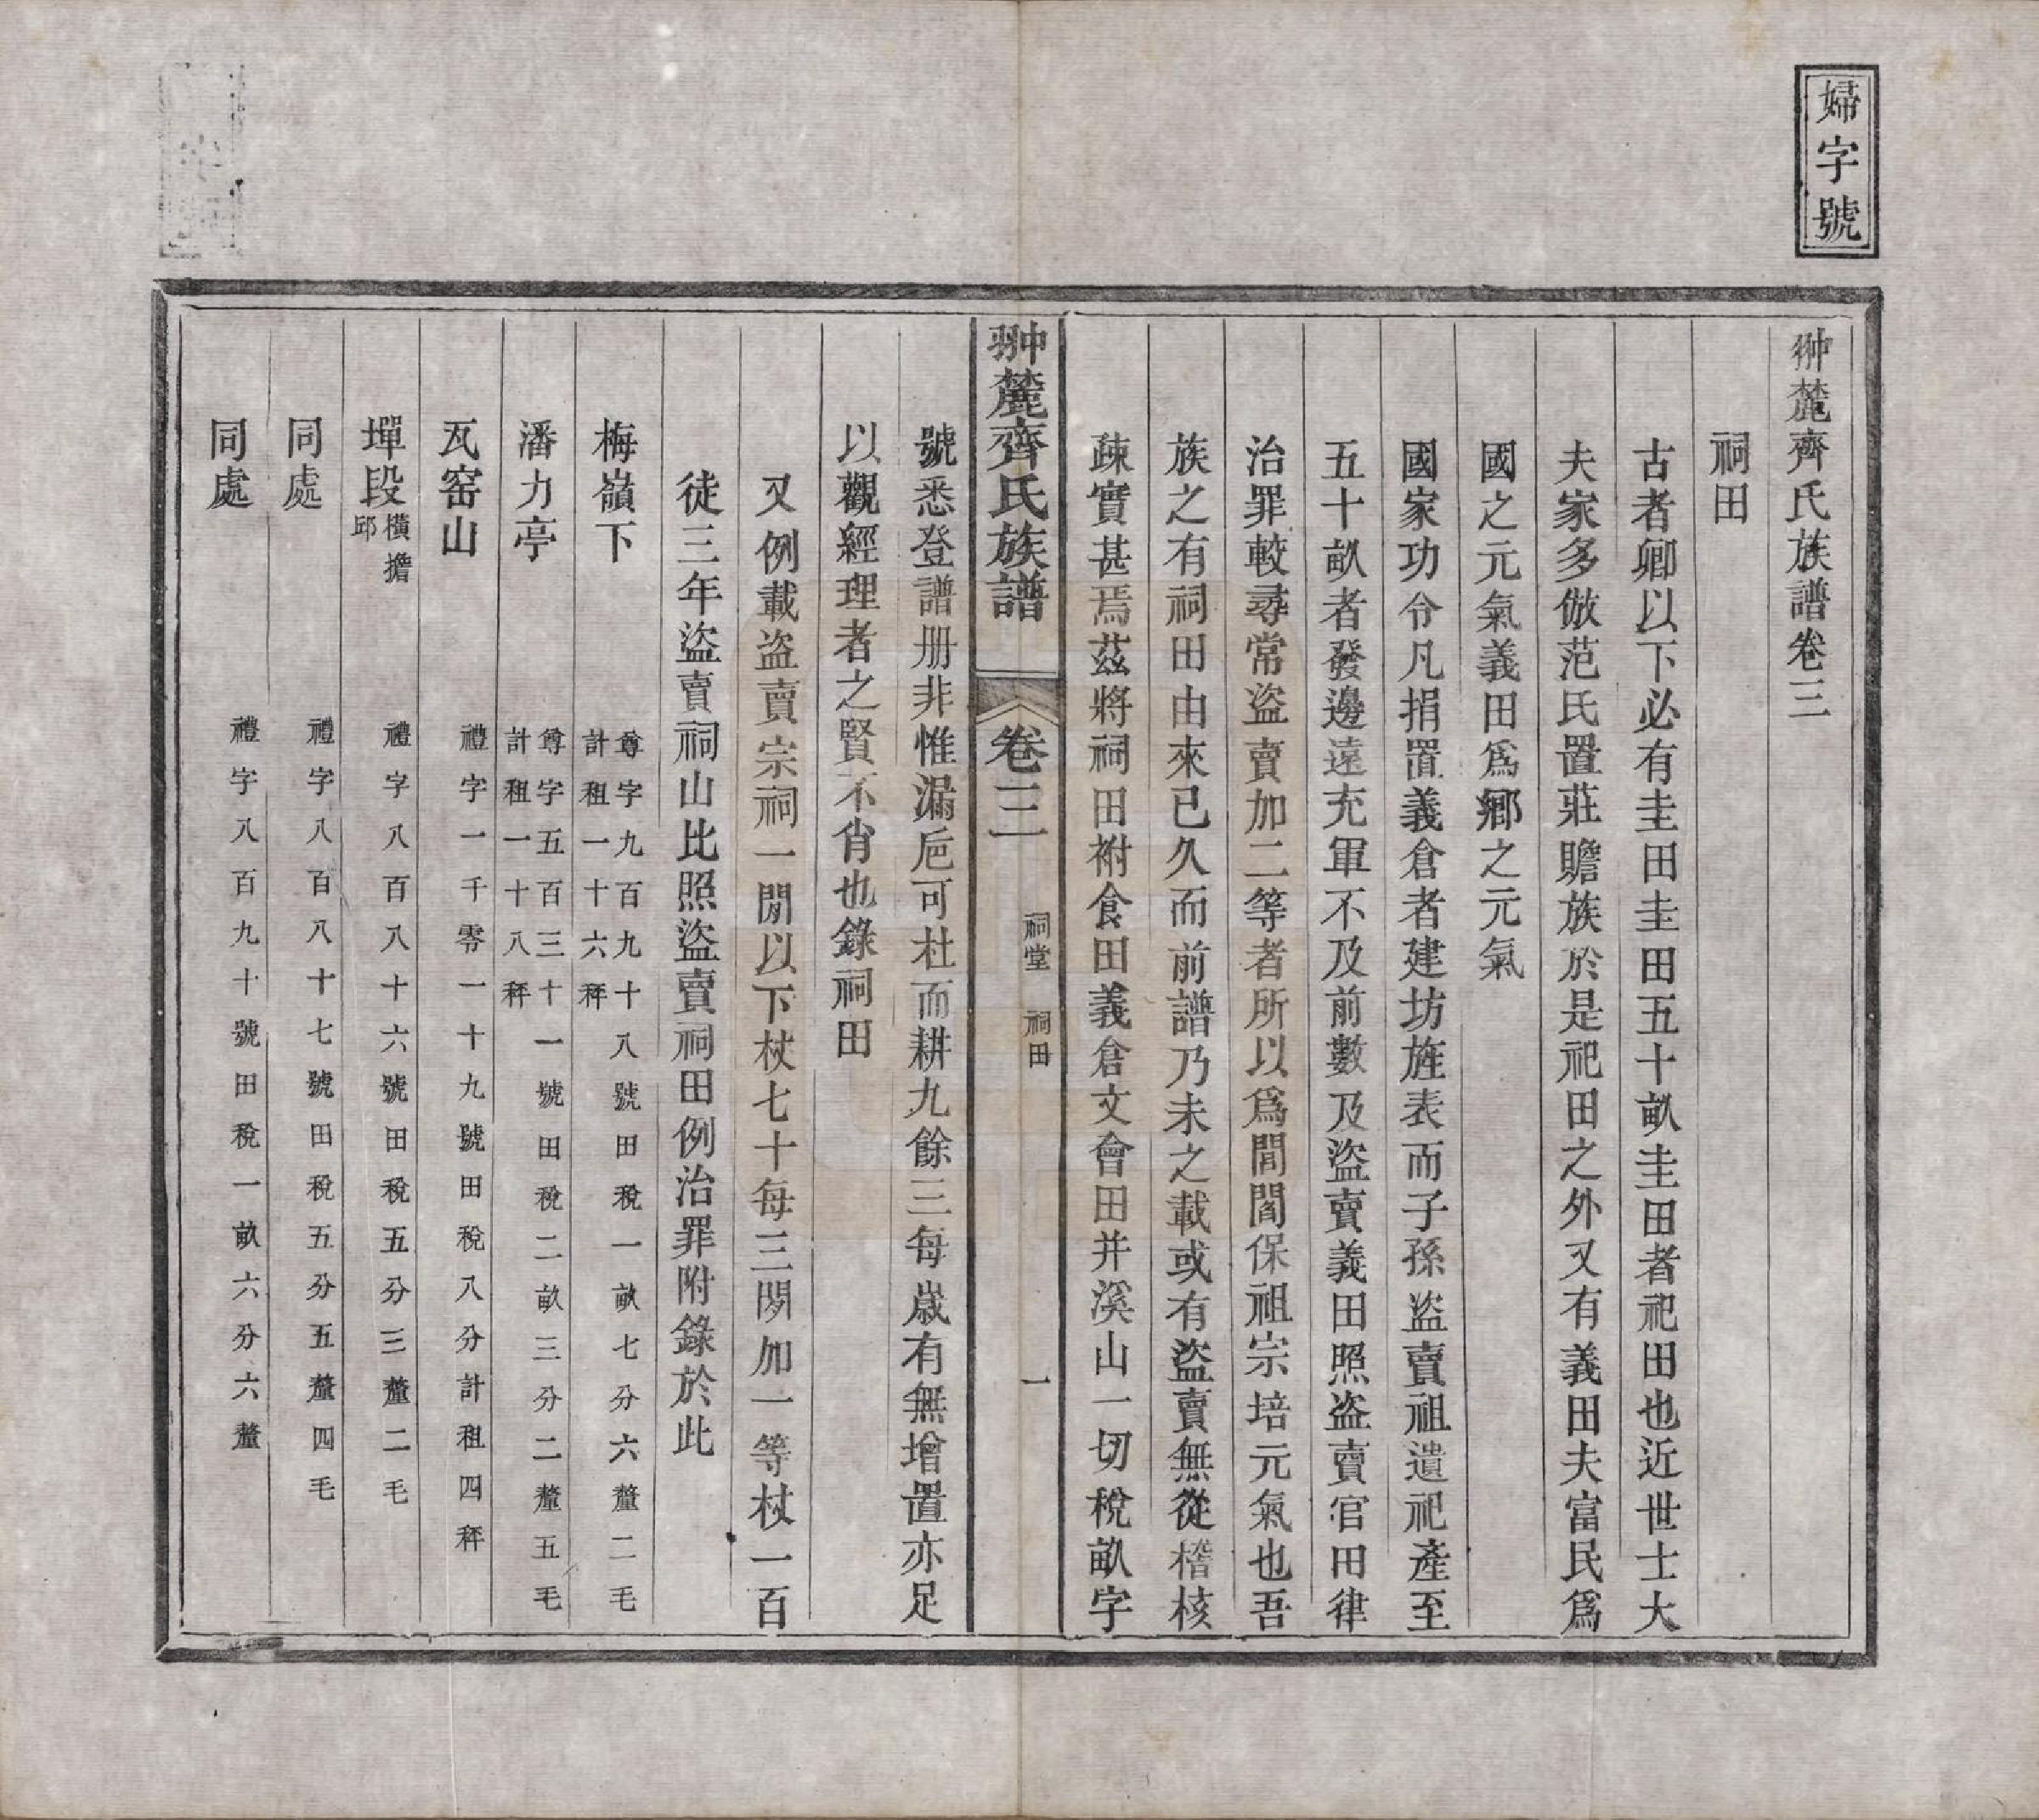 婦字號
翀麓齊氏族譜卷三
祠田
古者卿以下必有圭田圭田五十畝圭田者祀田也近世士大
夫家多倣范氏置莊贍族於是祀田之外又有義田夫富民爲
國之元氣義田爲鄉之元氣
國家功令凡捐置義倉者建坊旌表而子孫盜賣祖遺祀產至
五十畝者發邊遠充軍不及前數及盜賣義田照盜賣官田律
治罪較尋常盜賣加二等者所以爲閭閻保祖宗培元氣也吾
族之有祠田由來已久而前譜乃未之載或有盜賣無從稽核
疎實甚焉茲將祠田祔食田義倉文會田并溪山一切稅畝字
翀麓齊氏族譜 卷三 祠堂 祠田 一
號悉登譜册非惟漏巵可杜而耕九餘三每歲有無增置亦足
以觀經理者之賢不肖也錄祠田
又例載盜賣宗祠一間以下杖七十每三間加一等杖一百
徒三年盜賣祠山比照盜賣祠田例治罪附錄於此
梅嶺下 尊字九百九十八號田稅一畝七分六釐二毛 計租一十六秤
潘力亭 尊字五百三十一號田稅二畝三分二釐五毛 計租一十八秤
瓦窑山 禮字一千零一十九號田稅八分計租四秤
墠段橫擔邱 禮字八百八十六號田稅五分三釐二毛
同處 禮字八百八十七號田稅五分五釐四毛
同處 禮字八百九十號田稅一畝六分六釐